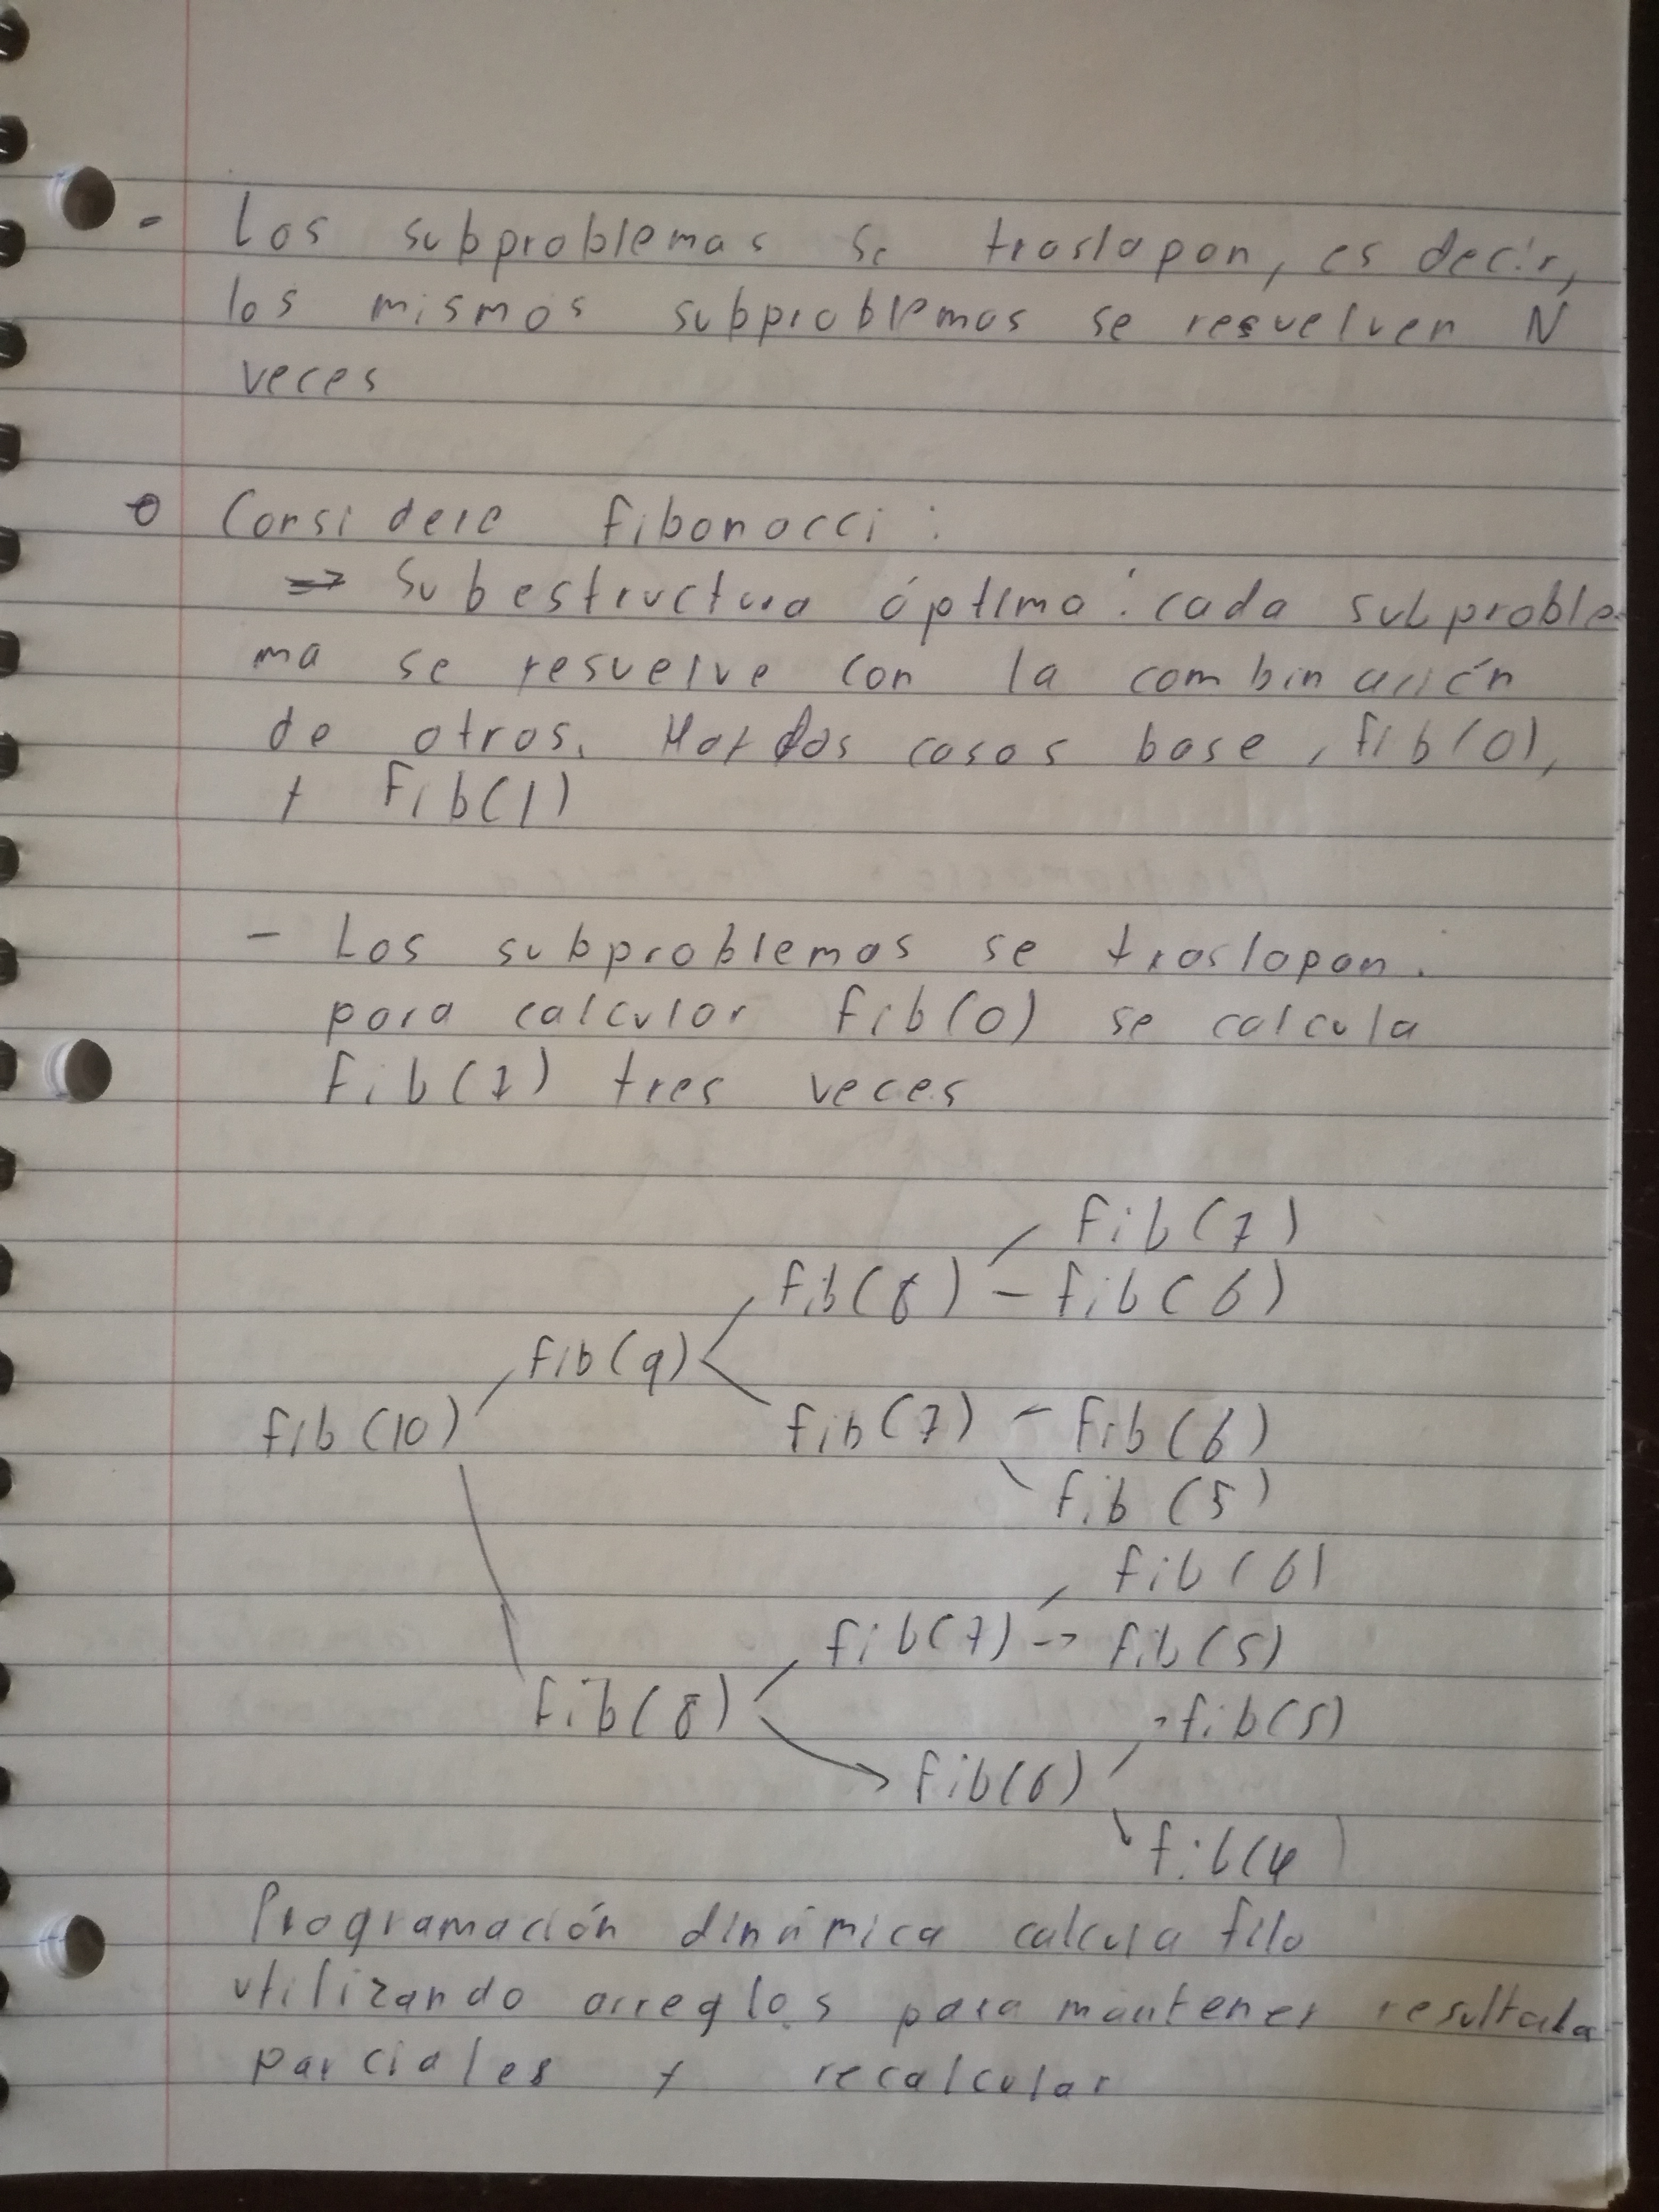 - Los subproblemas se traslapan, es decir,
los mismos subproblemas se resuelven N
veces
Considere fibonacci:
⇒ Subestructura óptima: cada subproble-
ma se resuelve con la combinación
de otros. Hay dos casos base, fib(0),
y Fib(1)
- Los subproblemas se traslapan.
para calcular fib(0) se calcula
Fib(7) tres veces
fib(7)
fib(8) - fib(6)
fib(9)
fib(10)
fib(7) - fib(6)
fib(5)
fib(6)
fib(7) -> fib(5)
fib(8)
fib(5)
fib(6)
fib(4)
Programación dinámica calcula
utilizando arreglos para mantener resultada
parciales y recalcular